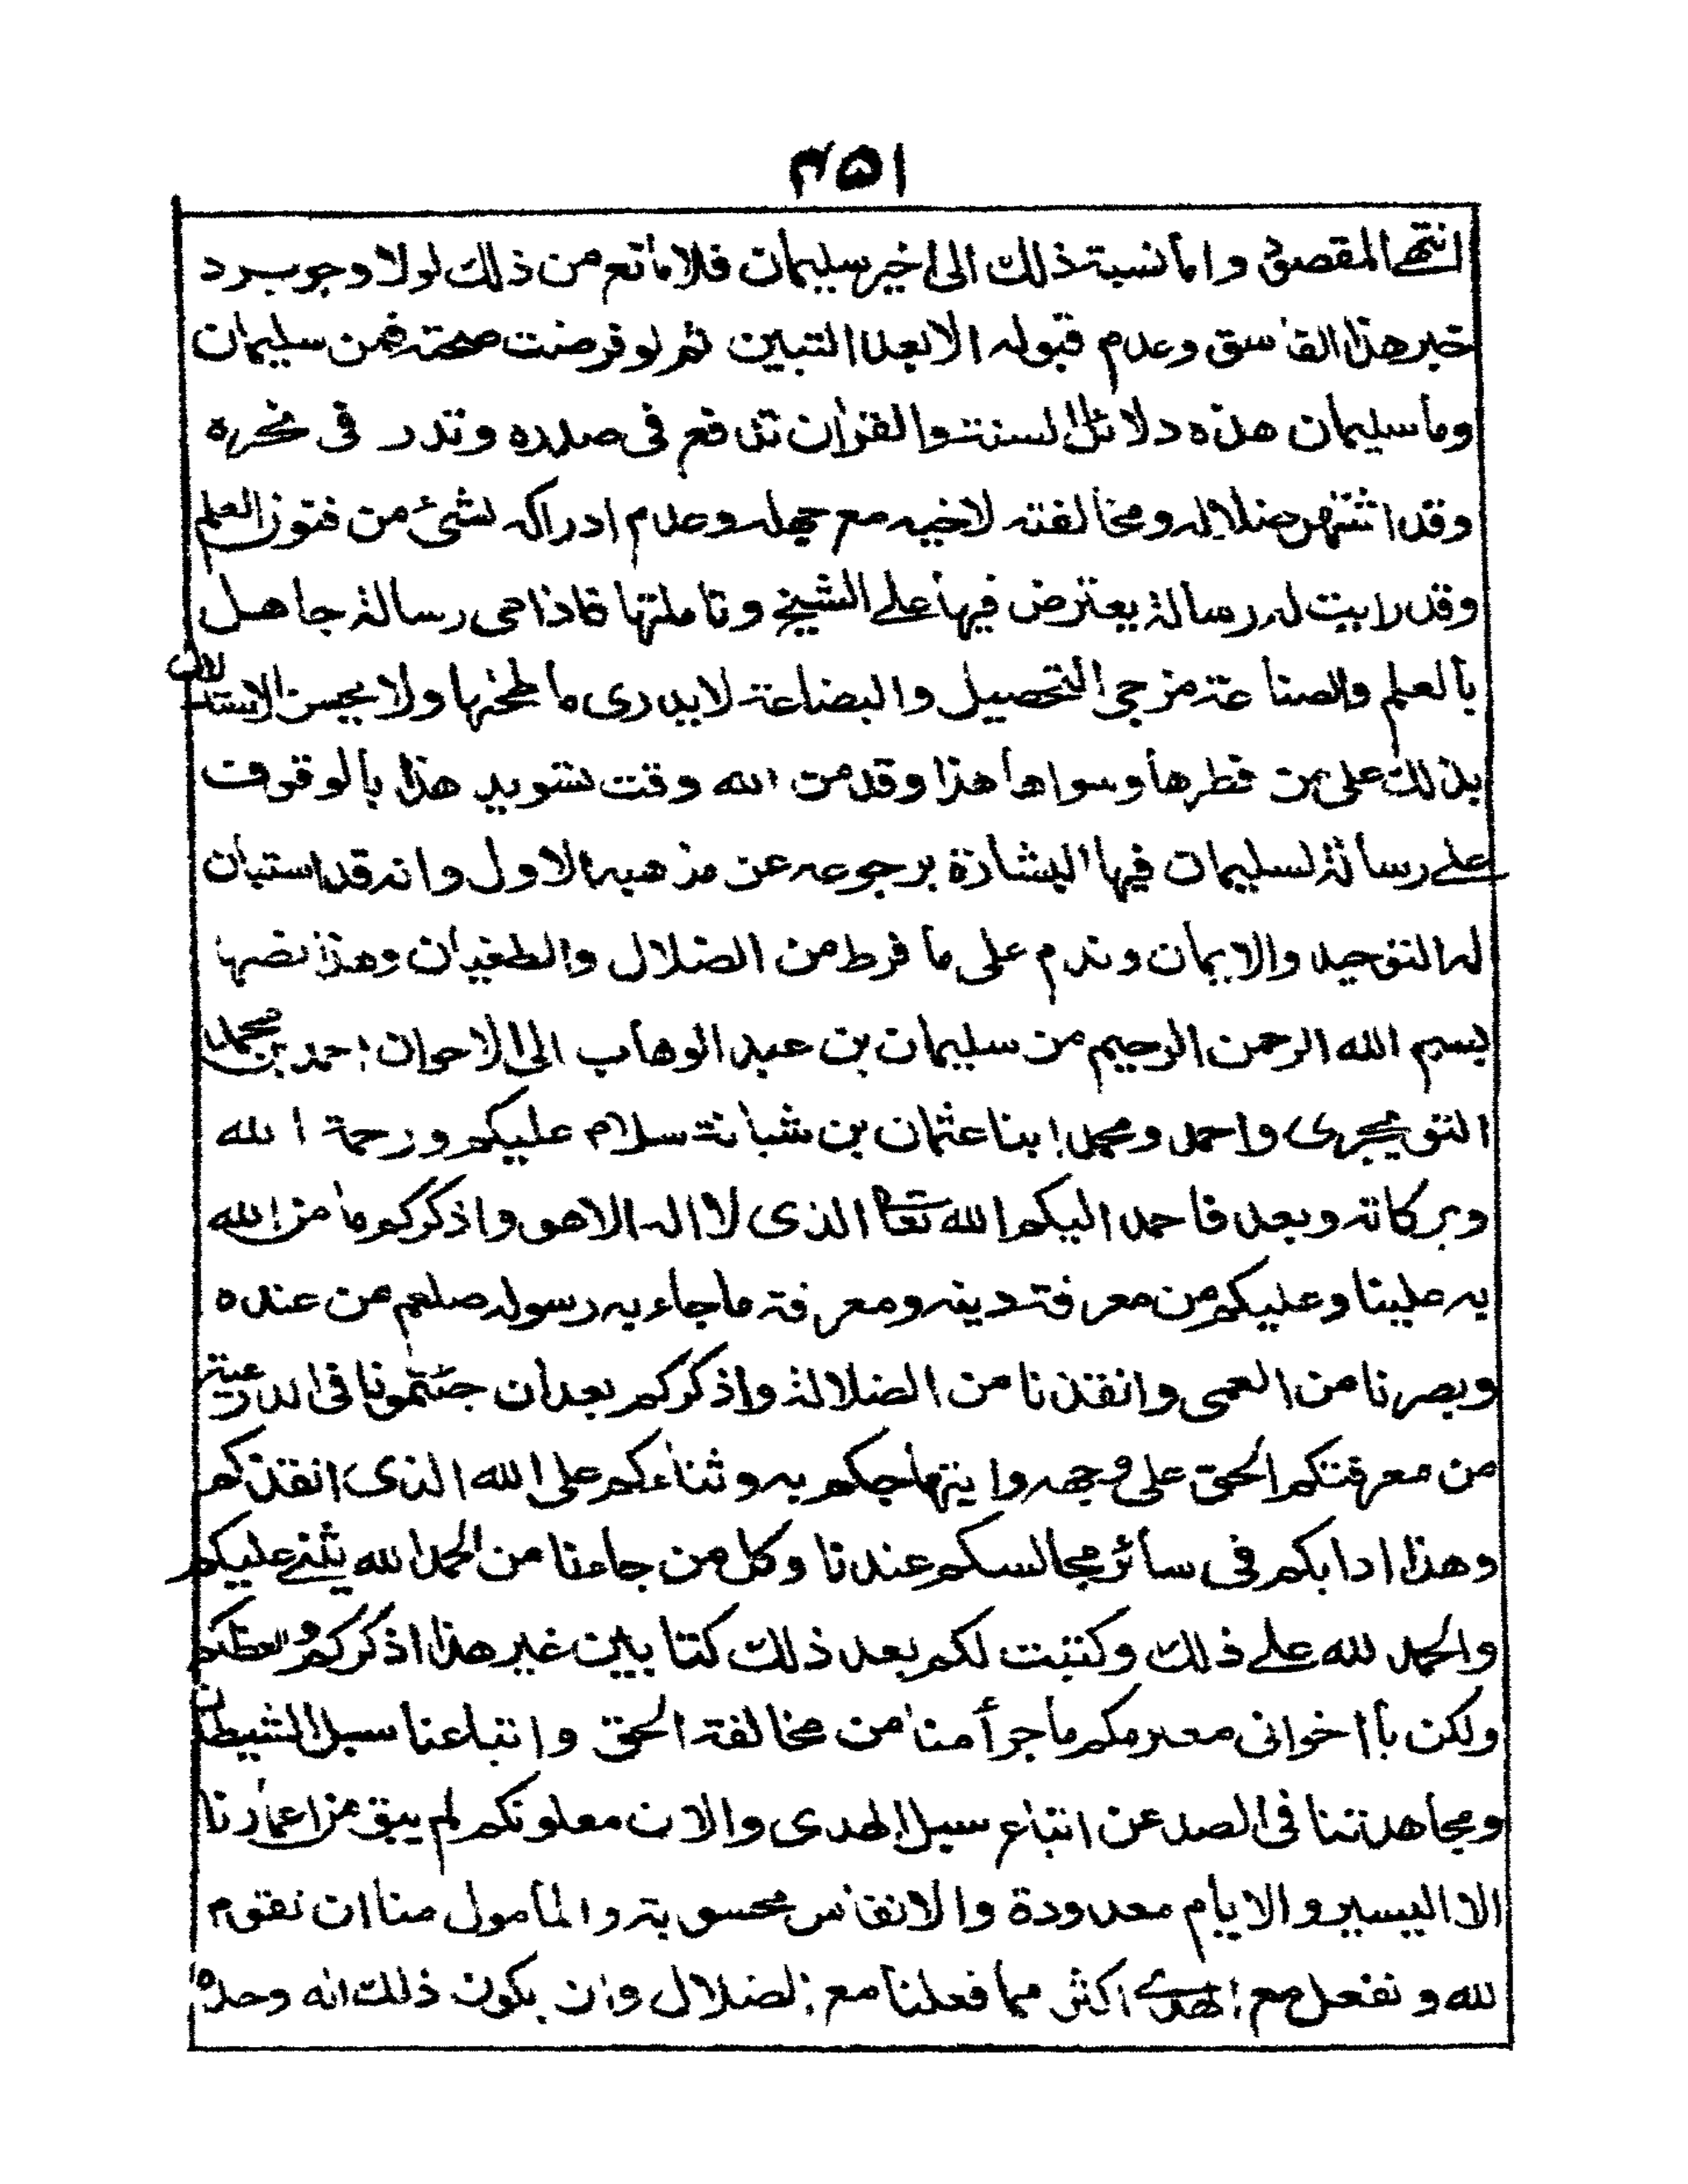 ٣٥١
انتهى المقصود واما نسبة ذلك الى اخيه سليمان فلا مانع من ذلك لولا وجوب رد
خبر هذا الفاسق وعدم قبوله الا بعد التبين ثم لو فرضت صحته فمن سليمان
وما سليمان هذه دلائل السنة والقرآن تدفع في صدره وتدر في نحره
وقد اشتهر ضلاله ومخالفته لاخيه مع جهله وعدم ادراكه لشئ من فنون العلم
وقد رايت له رسالة يعترض فيها على الشيخ وتاملتها فاذا هي رسالة جاهل
بالعلم والصناعة مزجى التحصيل والبضاعة لا يدرى ما طحنها ولا يحسن الاستدلال
بذلك على من فطرها وسواها هذا وقد من الله وقت تسويد هذا بالوقوف
على رسالة لسليمان فيها البشارة برجوعه عن مذهبه الاول وانه قد استبان
له التوحيد والايمان وندم على ما فرط من الضلال والطغيان وهذا نصها
بسم الله الرحمن الرحيم من سليمان بن عبد الوهاب الى الاخوان احمد بن محمد
التويجرى واحمد ومحمد ابنا عثمان بن شبانة سلام عليكم ورحمة الله
وبركاته وبعد فاحمد اليكم الله تعا الذى لا اله الا هو واذكركم ما من الله
به علينا وعليكم من معرفة دينه ومعرفة ما جاء به رسوله صلعم من عنده
وبصرنا من العمى وانقذنا من الضلالة واذكركم بعد ان جئتمونا في الدرعية
من معرفتكم الحق على وجهه وابتهاجكم به وثناءكم على الله الذى انقذكم
وهذا دابكم في سائر مجالسكم عندنا وكل من جاءنا من الحمد لله يثنى عليكم
والحمد لله على ذلك وكتبت لكم بعد ذلك كتابين غير هذا اذكركم واعظكم
ولكن يا اخوانى معلومكم ما جرأ منا من مخالفة الحق واتباعنا سبل الشيطان
ومجاهدتنا في الصد عن اتباع سبل الهدى والان معلومكم لم يبق من اعمارنا
الا اليسير والايام معدودة والانفاس محسوبة والمامول منا ان نقوم
لله ونفعل مع الهدى اكثر مما فعلنا مع الضلال وان يكون ذلك لله وحده